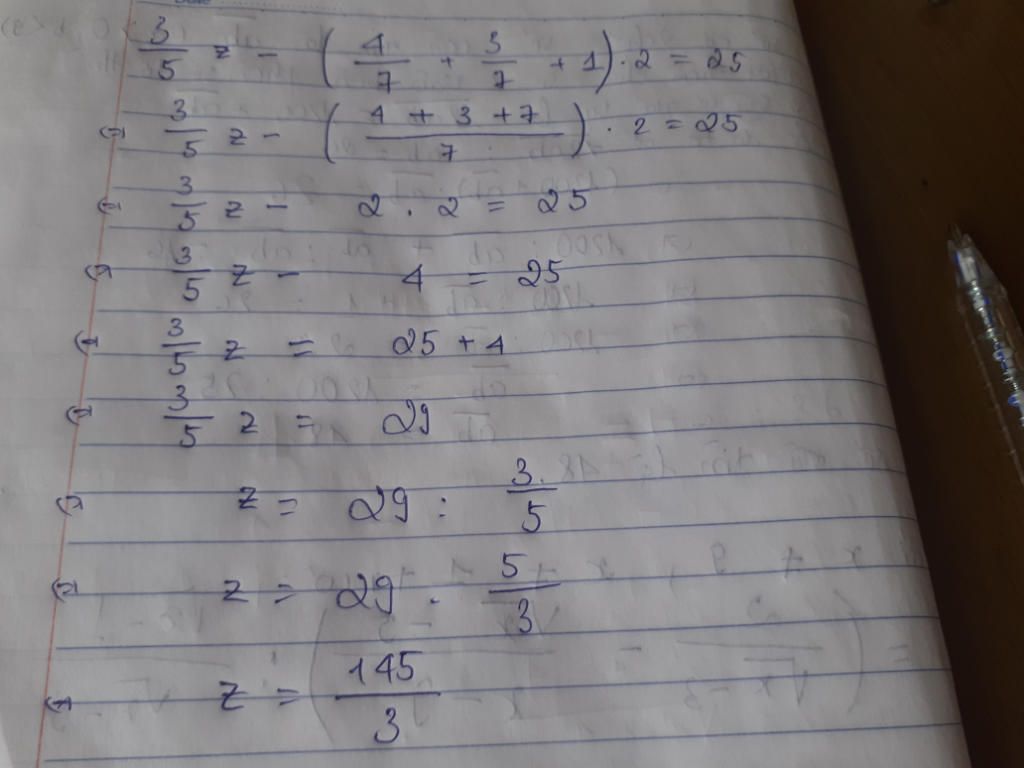 3/5 z - (4/7 + 3/7 + 1) . 2 = 25
⇔ 3/5 z - ((4 + 3 + 7)/7) . 2 = 25
⇔ 3/5 z - 2 . 2 = 25
⇔ 3/5 z - 4 = 25
⇔ 3/5 z = 25 + 4
⇔ 3/5 z = 29
⇔ z = 29 : 3/5
⇔ z = 29 . 5/3
⇔ z = 145/3